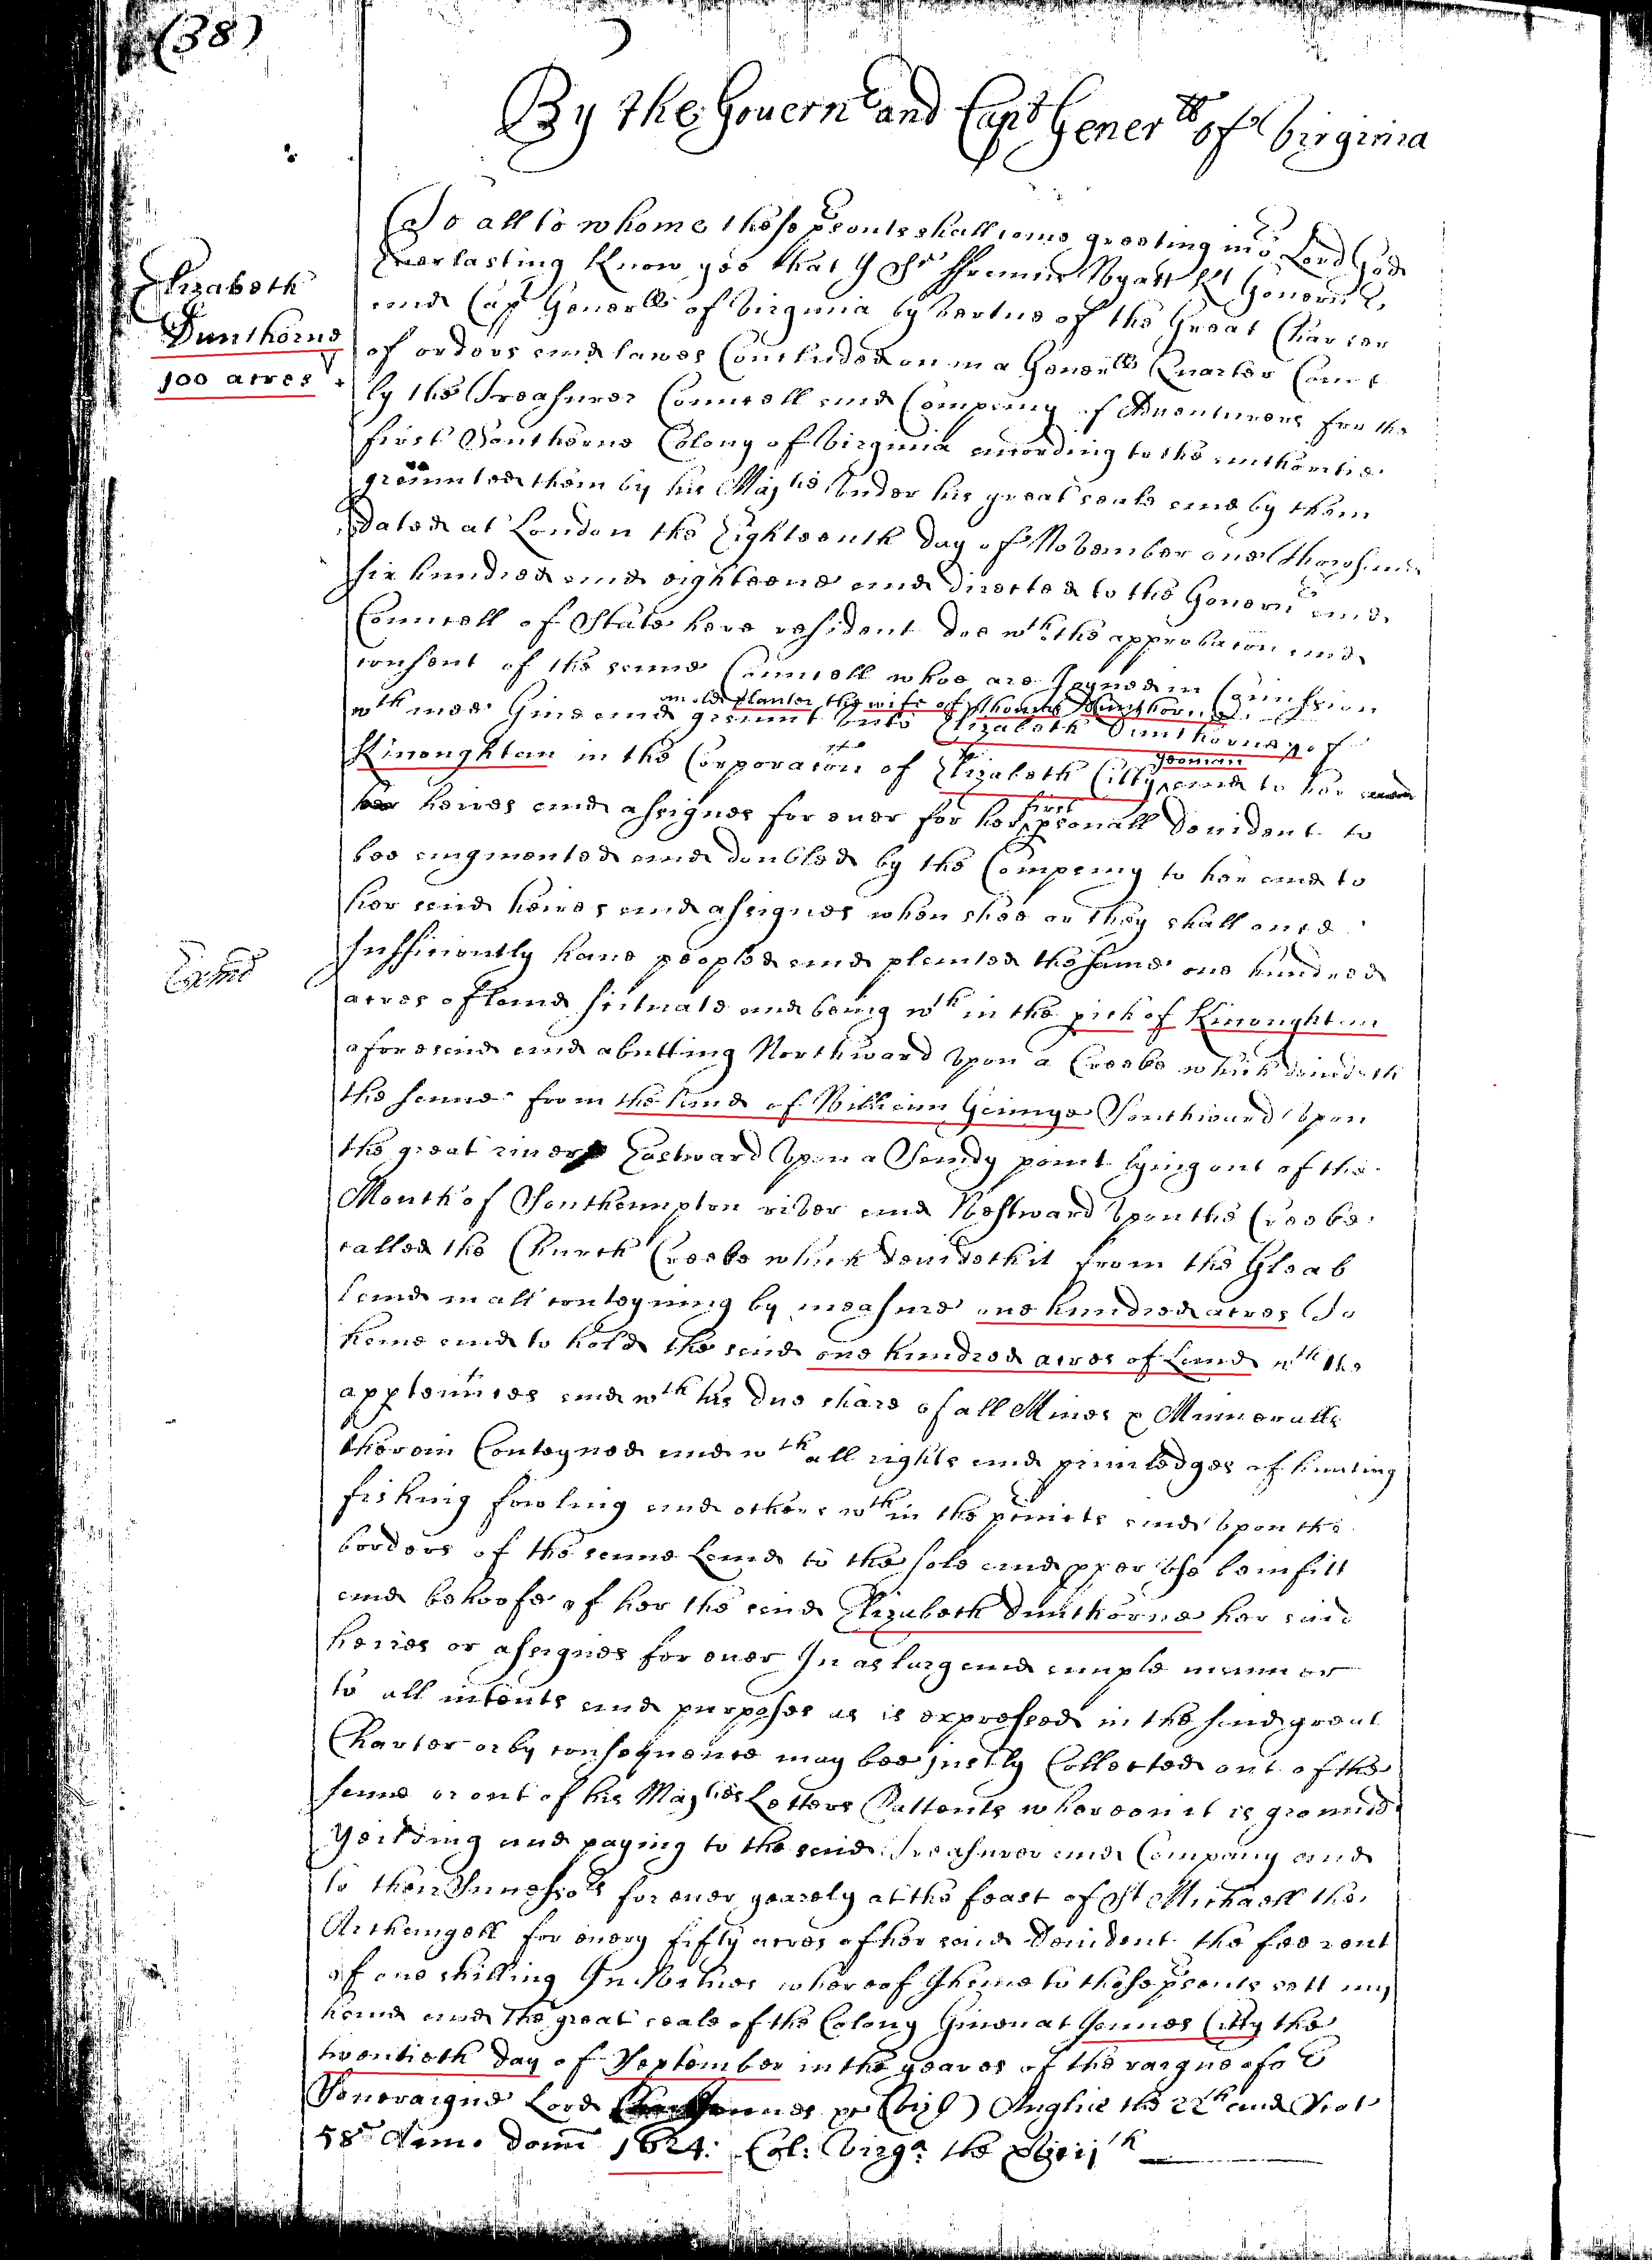 (38)
By the Gouern^r and Capt Gener^ll of Virginia
To all to whome these psents shall come greeting in o^r Lord God
Elizabeth
Everlasting Know yee that I S^r ffrauncis Wyatt K^t Gouern^r &c
Dunthorne
and Cap^t Generall of Virginia by vertue of the Great Charter
100 acres
of orders and lawes Concluded on in a Generall Quarter Court
by the Treasurer Councell and Company of Adventurers for the
first Southerne Colony of Virginia according to the authoritie
graunted them by his Maj^tie under his great seale and by them
dated at London the Eighteenth day of November one Thowsand
six hundred and eighteene and directed to the Gouern^r and
Councell of State here resident doe w^th the approbacon and
consent of the same Councell whoe are Joyned in Comission
an olde planter the wife of Thomas Dunthorne
w^th mee Giue and graunt unto Elizabeth Dunthorne of
Kicoughtan in the Corporacon of Elizabeth Citty and to her
yeoman
heires and assignes for euer for her psonall deuident to
first
bee augmented and doubled by the Company to her and to
her said heires and assignes when shee or they shall once
sufficiently haue peopled and planted the same one hundred
acres of land situate and being w^th in the pich of Kicoughtan
aforesaid and abutting Northward upon a Creeke which deuideth
the same from the land of William Gainye Southward upon
the great river Eastward upon a Sandy point lying out of the
Mouth of Southampton river and Westward upon the Creeke
called the Church Creeke which deuideth it from the Gleab
land in all conteyning by measure one hundred acres To
haue and to hold the said one hundred acres of Land w^th the
apptennces and w^th his due share of all Mines & Minneralls
therein Conteyned and w^th all rights and priuiledges of hunting
fishing fowling and others w^th in the pcincts and upon the
borders of the same Land to the sole and pper use benifitt
and behoofe of her the said Elizabeth Dunthorne her said
heires or assignes for euer In as larg and ample manner
to all intents and purposes as is expressed in the said great
Charter or by consequence may bee justly Collected out of the
same or out of his Maj^ties Letters Pattents whereon it is grounded
Yeilding and paying to the said Treasurer and Company and
to their Successo^rs for euer yearely at the feast of St Michaell the
Archangell for euery fifty acres of her said Deuident the fee rent
of one shilling In Witnes whereof I haue to these psents sett my
hand and the great seale of the Colony Giuen at James Citty the
twentieth day of September in the yeares of the raigne of o^r
Soueraigne Lord James Anglie the 22^th and Scot
58^th Anno Domi 1624: Col: Virg^a: the